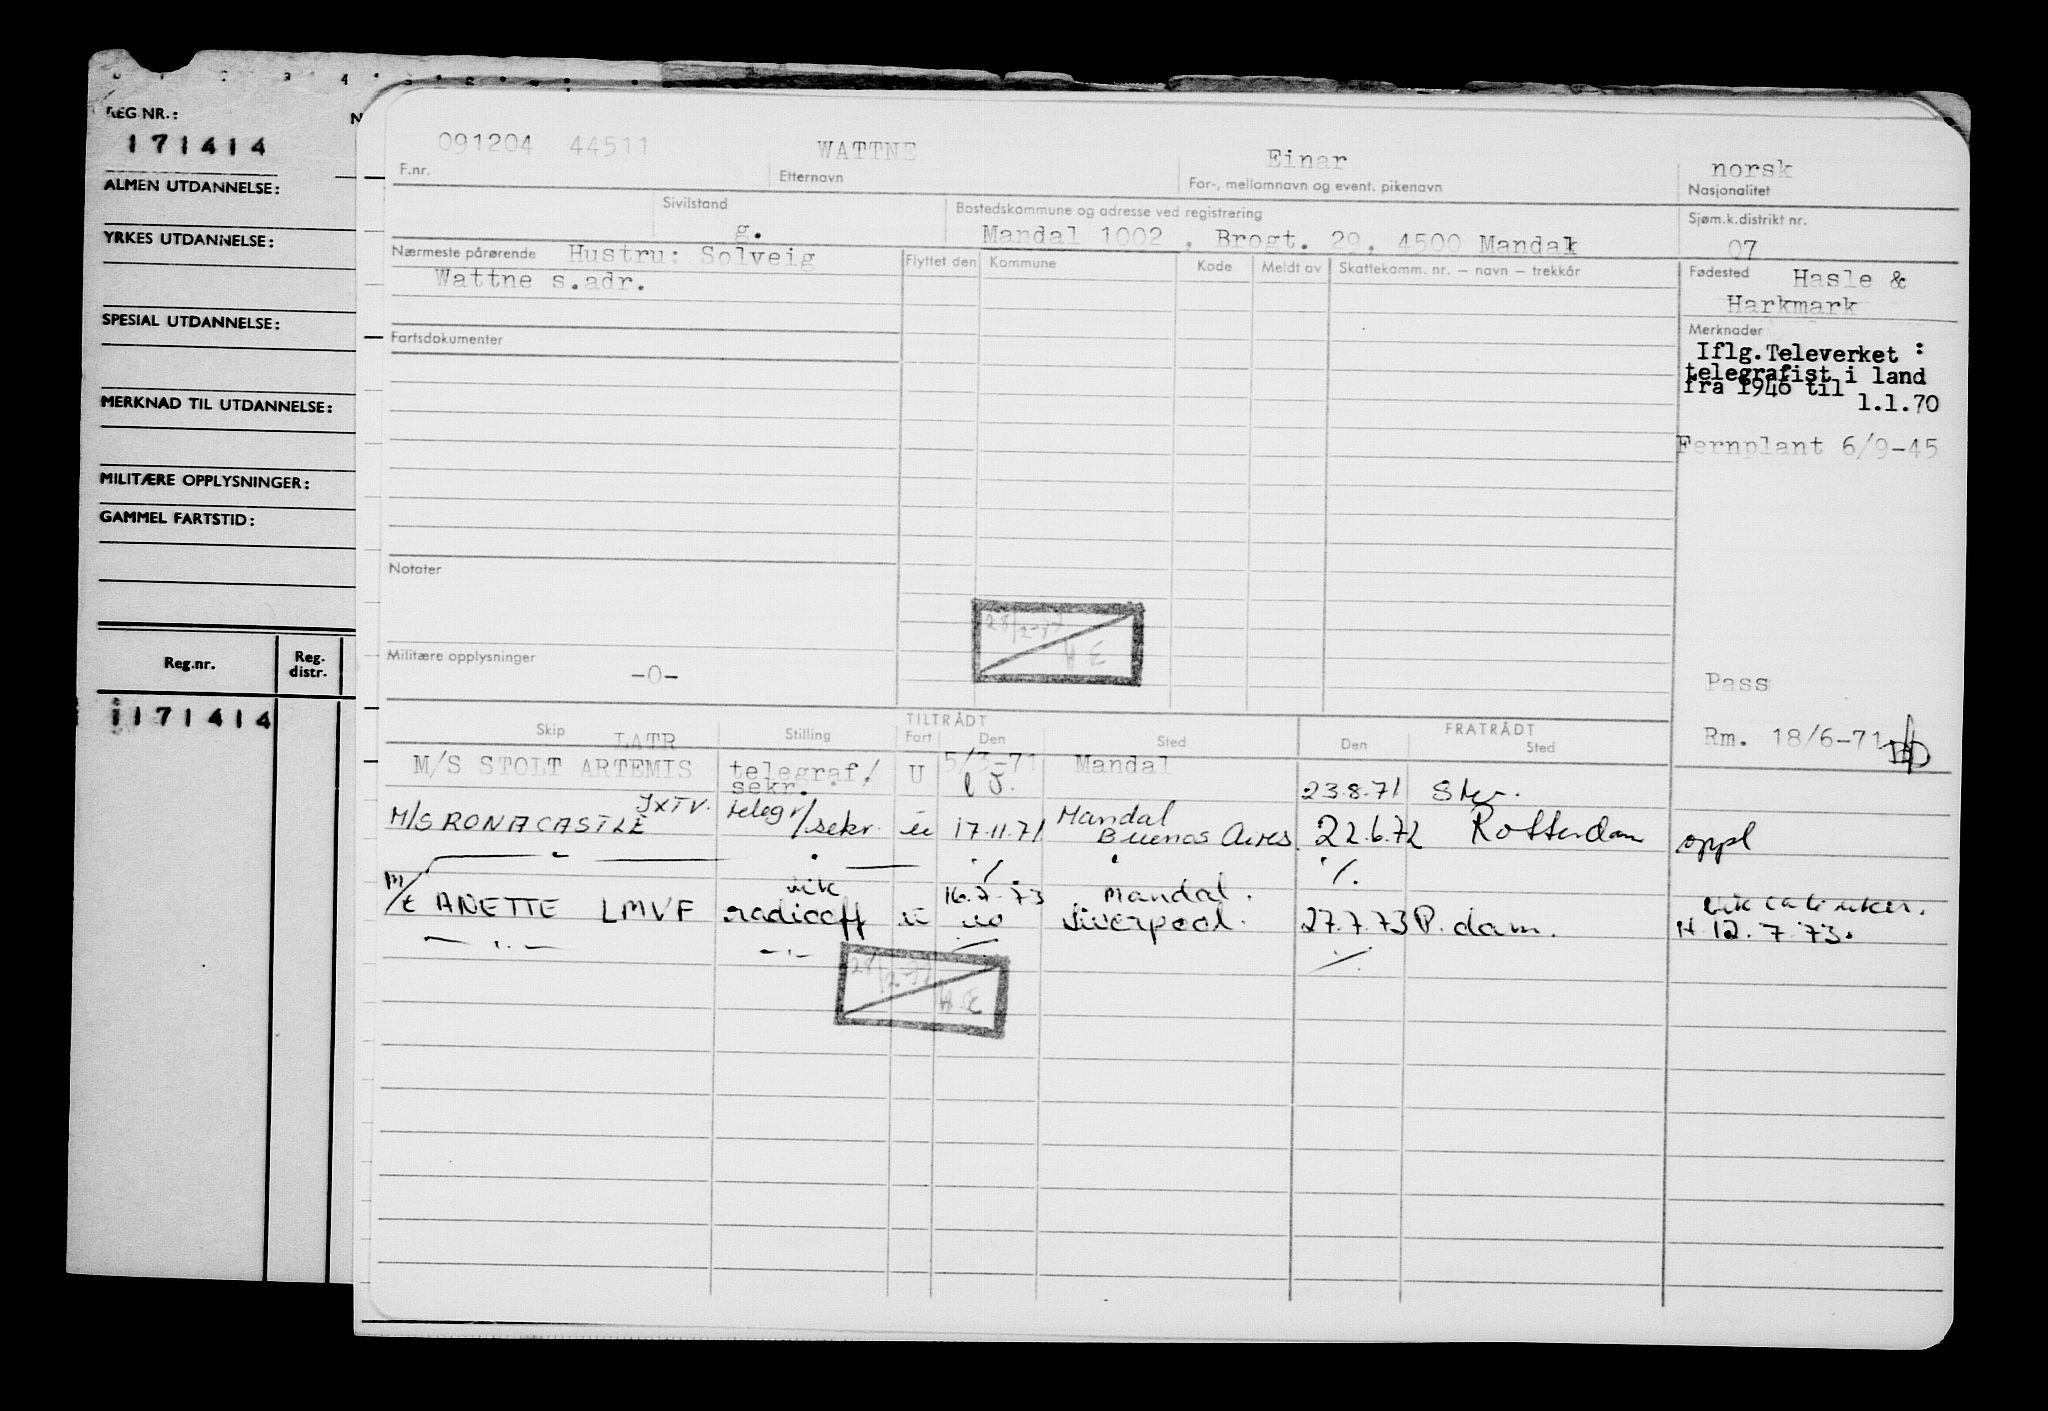 REG NR.:
171414
ALMEN UTDANNELSE:
YRKES UTDANNELSE:
SPESIAL UTDANNELSE:
MERKNAD TIL UTDANNELSE:
MILITÆRE OPPLYSNINGER:
GAMMEL FARTSTID:
Reg.nr. Reg. distr.
171414
091204 44511 WATTNE Einar norsk
F.nr. Etternavn For-, mellomnavn og event. pikenavn Nasjonalitet
Sivilstand Bostedskommune og adresse ved registrering Sjøm.k.distrikt nr.
g. Mandal 1002 , Brogt. 29, 4500 Mandal 07
Nærmeste pårørende Hustru: Solveig Flyttet den Kommune Kode Meldt av Skattekomm. nr. – navn – trekkår Fødested Hasle &
Wattne s.adr. Harkmark
Fartsdokumenter Merknader
Iflg.Televerket :
telegrafist i land
fra 1946 til
1.1.70
Fernplant 6/9-45
Notater
28/2-77
Militære opplysninger
-0- Pass
TILTRÅDT FRATRÅDT
Skip Stilling Fart Den Sted Den Sted
LATR Rm. 18/6-71
M/S STOLT ARTEMIS telegraf/ U 5/3-71 Mandal
sekr. 23.8.71
JXTV. telegr Mandal
M/S RONACASTLE /sekr. u 17.11.71 Buenos Aires. 22.6.72 Rotterdam oppl
vik 16.7.73 Mandal.
M/t ANETTE LMVF radiooff u Liverpool. 27.7.73 R.dam. H. 12.7.73.
28/2-77